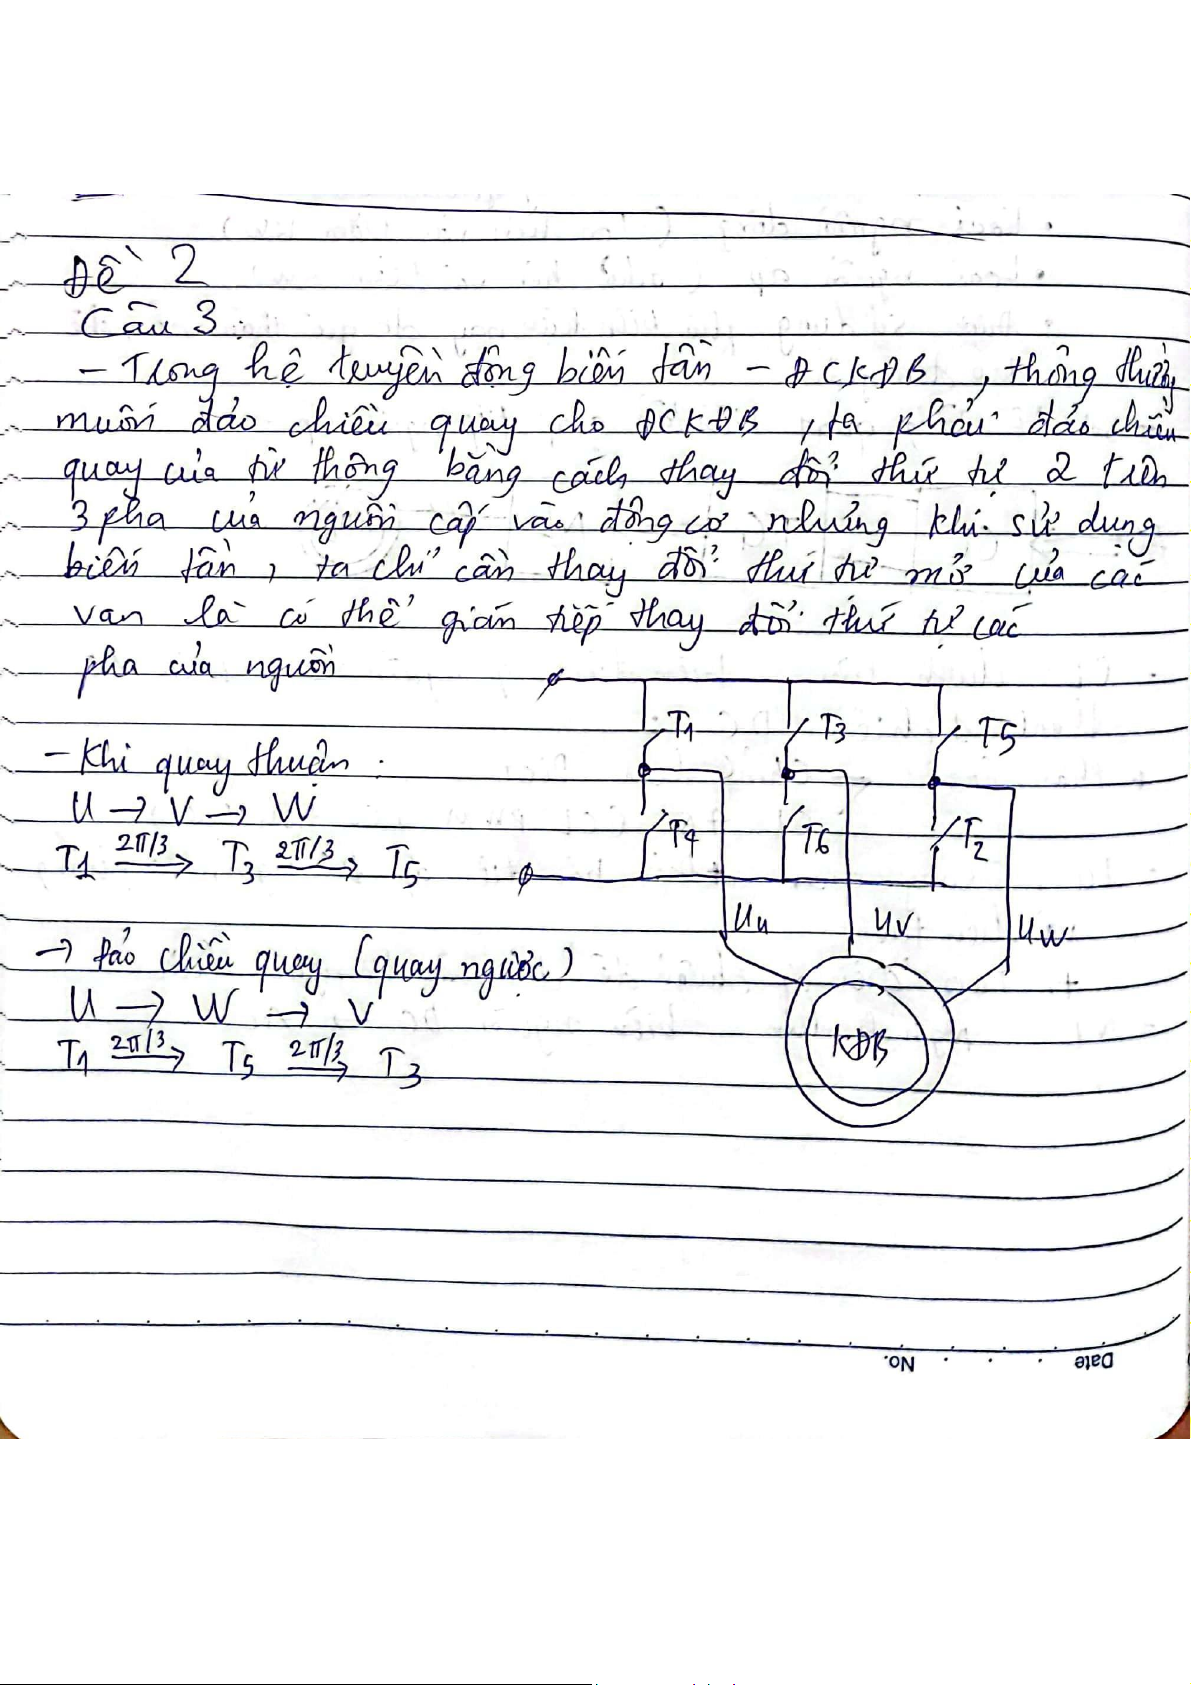 Đề 2
Câu 3:
- Trong hệ truyền động biến tần - ĐCKĐB, thông thường
muốn đảo chiều quay cho ĐCKĐB, ta phải đảo chiều
quay của từ thông bằng cách thay đổi thứ tự 2 trên
3 pha của nguồn cấp vào động cơ nhưng khi sử dụng
biến tần, ta chỉ cần thay đổi thứ tự mở của các
van là có thể gián tiếp thay đổi thứ tự các
pha của nguồn
- Khi quay thuận:
U → V → W
T1 2π/3 → T3 2π/3 → T5
→ Đảo chiều quay (quay ngược)
U → W → V
T1 2π/3 → T5 2π/3 → T3
T1 T3 T5
T4 T6 T2
Uu Uv Uw
KĐB
No. Date